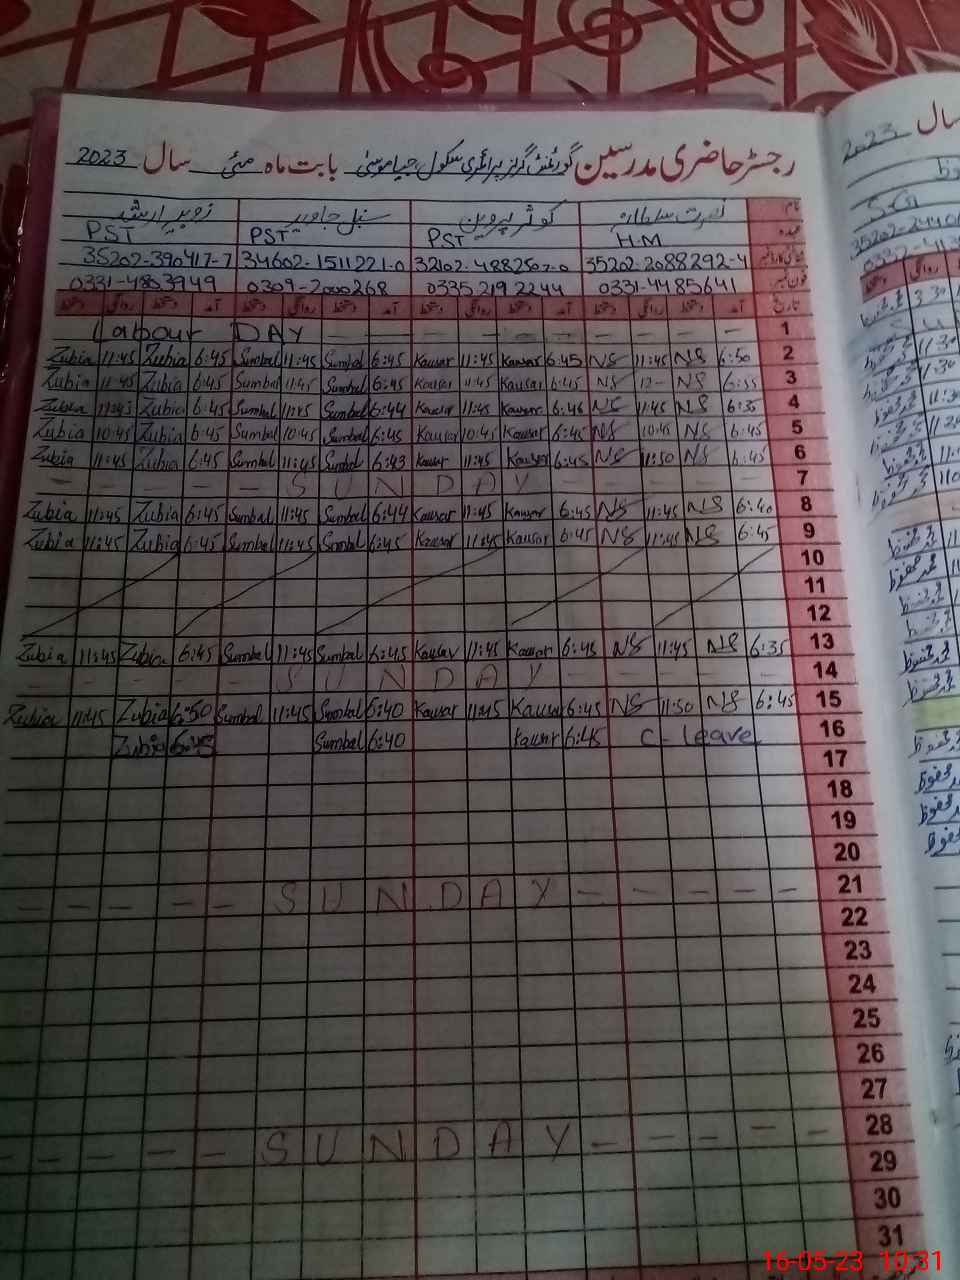 رجسٹر حاضری مدرسین گورنمنٹ گرلز پرائمری سکول جیا موسیٰ بابت ماہ مئی سال 2023
نام نصرت سلطانہ کوثر پروین سنبل جاوید زوبیہ ارشد
عہدہ H.M PST PST PST
35202-2088292-4 32102-4882507-0 34602-1511221-0 35202-390417-7
فون نمبر 0331-4485641 0335 219 2244 0309-2000268 0331-4803949
تاریخ آمد دستخط روانگی دستخط آمد دستخط روانگی دستخط آمد دستخط روانگی دستخط آمد دستخط روانگی دستخط
Labour DAY - - - - - - - - 1
Zubia 11:45 Zubia 6:45 Sumbal 11:45 Sumbal 6:45 Kausar 11:45 Kausar 6:45 NS 11:45 NS 6:50 2
Zubia 11:45 Zubia 6:45 Sumbal 11:45 Sumbal 6:45 Kausar 11:45 Kausar 6:45 NS 12- NS 6:35 3
Zubia 11:45 Zubia 6:45 Sumbal 11:45 Sumbal 6:44 Kausar 11:45 Kausar 6:46 NS 11:45 NS 6:35 4
Zubia 10:45 Zubia 6:45 Sumbal 10:45 Sumbal 6:45 Kausar 10:45 Kausar 6:45 NS 10:45 NS 6:45 5
Zubia 11:45 Zubia 6:45 Sumbal 11:45 Sumbal 6:43 Kausar 11:45 Kausar 6:45 NS 11:50 NS 6:45 6
- - - - - S U N D A Y - - - - - 7
Zubia 11:45 Zubia 6:45 Sumbal 11:45 Sumbal 6:44 Kausar 11:45 Kausar 6:45 NS 11:45 NS 6:40 8
Zubia 11:45 Zubia 6:45 Sumbal 11:45 Sumbal 6:45 Kausar 11:45 Kausar 6:45 NS 11:45 NS 6:45 9
10
11
12
Zubia 11:45 Zubia 6:45 Sumbal 11:45 Sumbal 6:45 Kausar 11:45 Kausar 6:45 NS 11:45 NS 6:35 13
- - - - - S U N D A Y - - - - - 14
Zubia 11:45 Zubia 6:50 Sumbal 11:45 Sumbal 6:40 Kausar 11:45 Kausar 6:45 NS 11:50 NS 6:45 15
Zubia 6:45 Sumbal 6:40 Kausar 6:45 C-leave 16
17
18
19
20
- - - - - S U N D A Y - - - - - 21
22
23
24
25
26
27
- - - - - S U N D A Y - - - - - 28
29
30
31
سال 2023
16-05-23 10:31